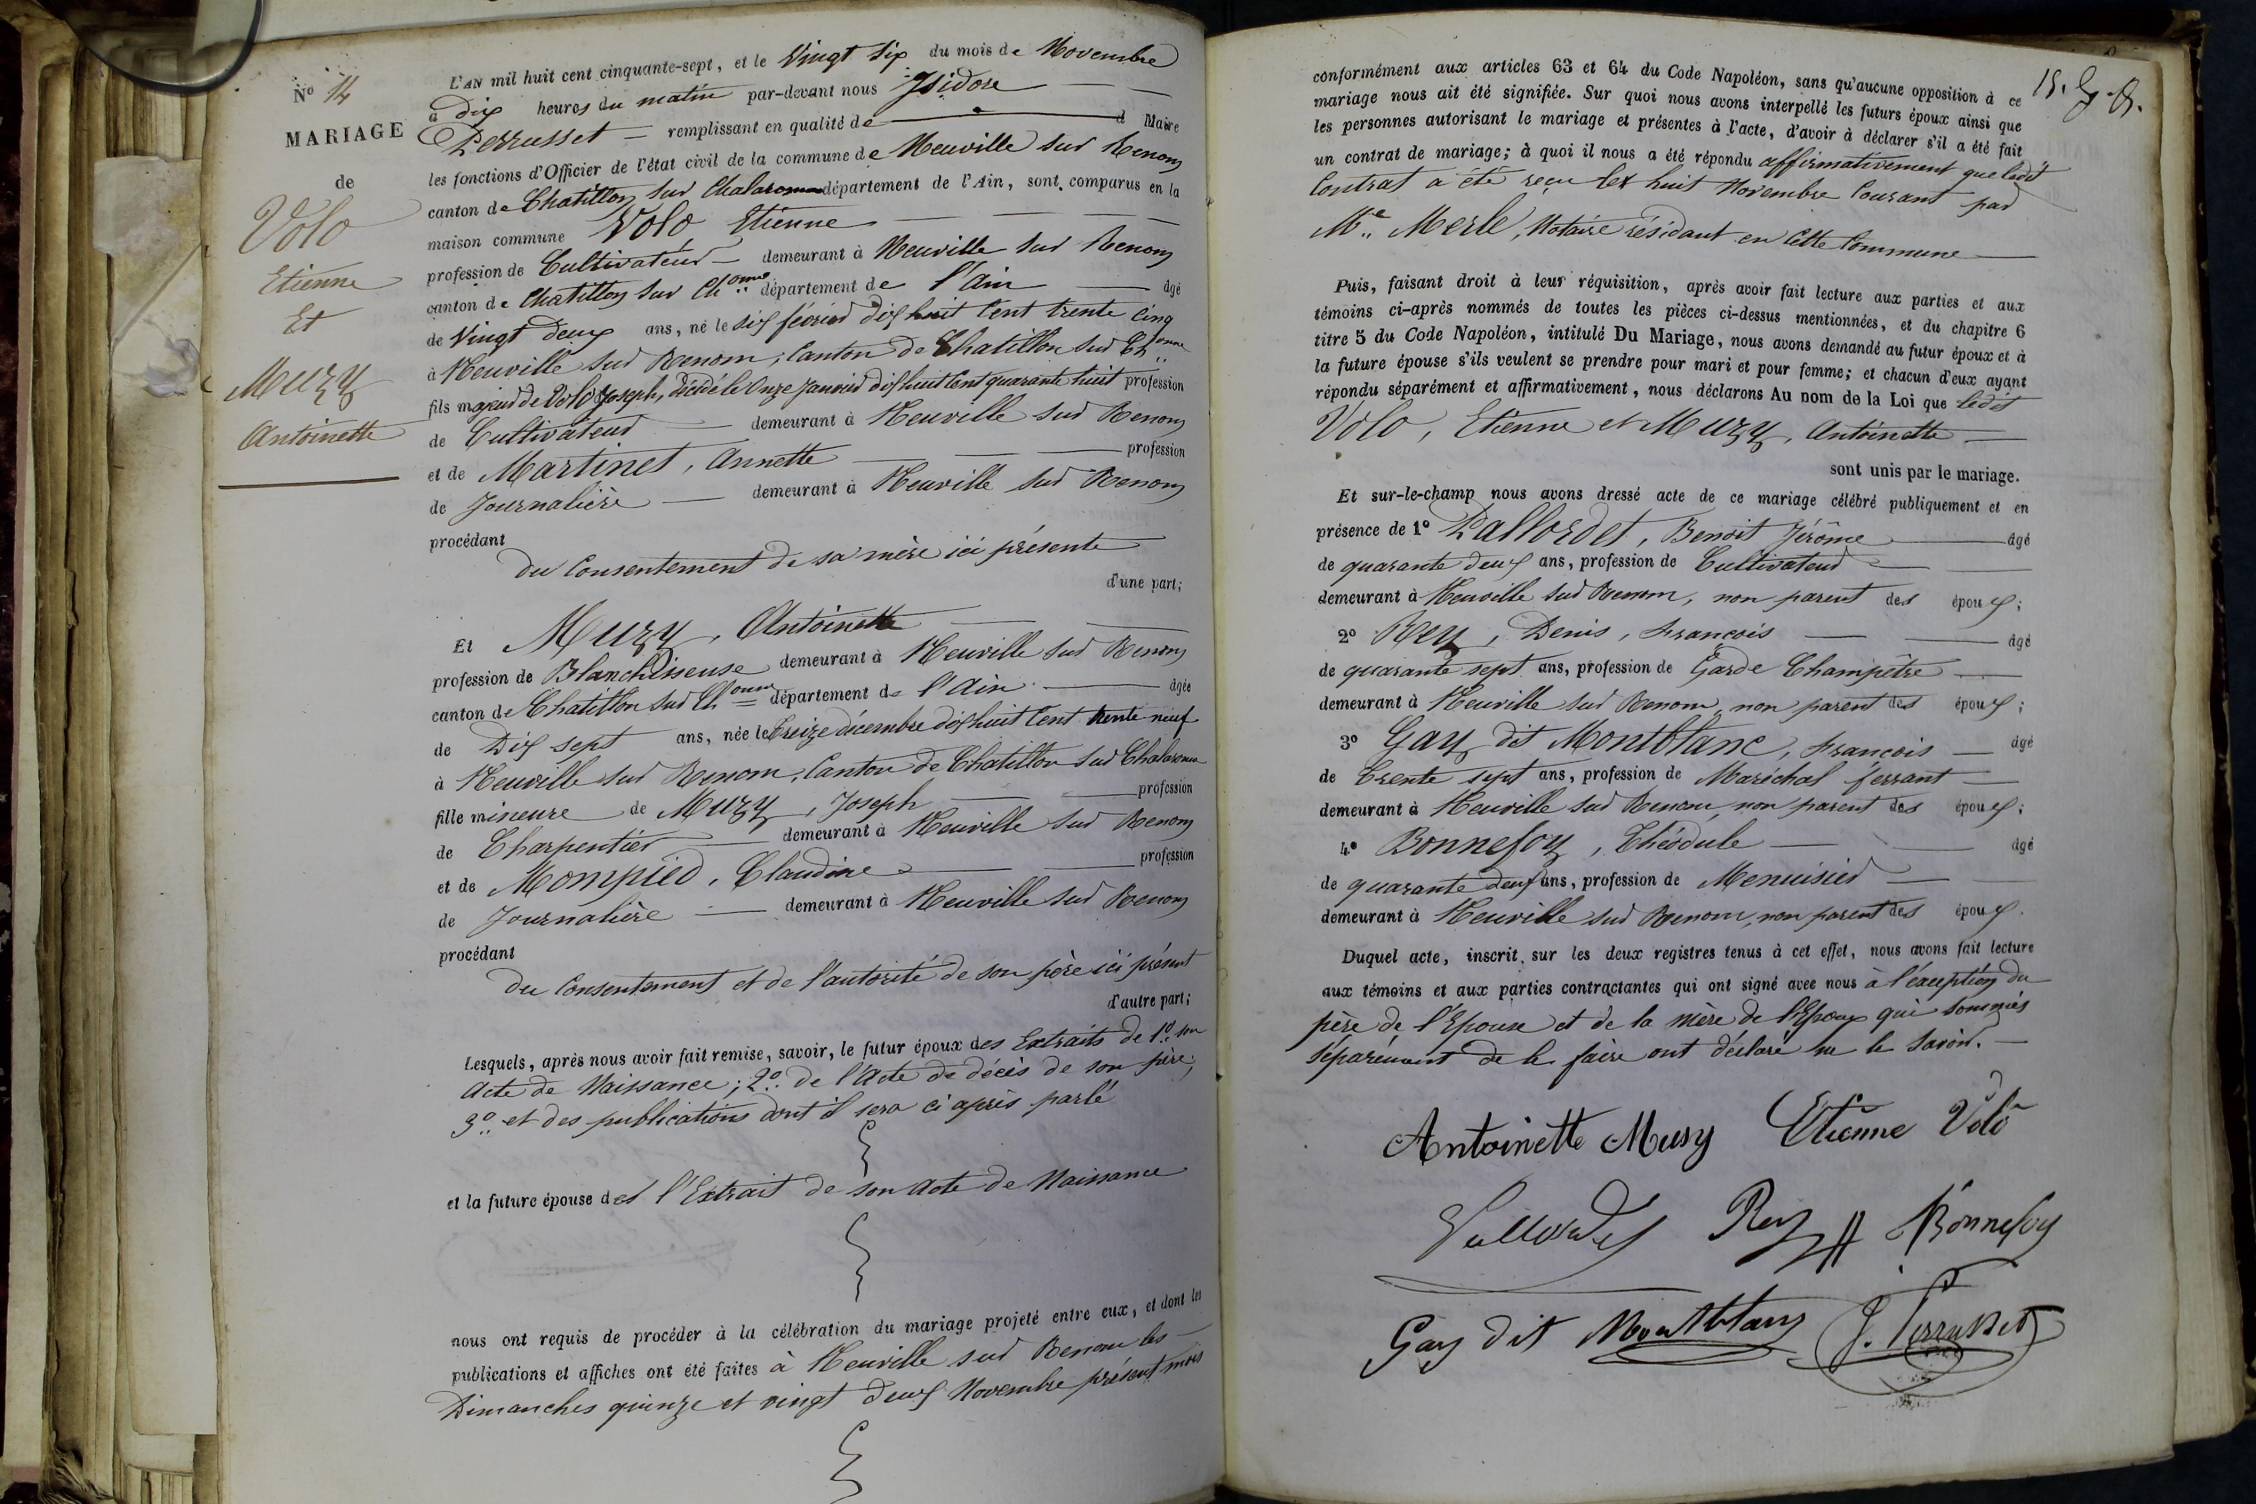 N° 14
MARIAGE
de
Volo
Etienne
Et
Muzy
Antoinette
L'AN mil huit cent cinquante-sept, et le Vingt six du mois de Novembre
à dix heures du matin par-devant nous Isidore
Perrusset remplissant en qualité de Maire
les fonctions d'Officier de l'état civil de la commune de Neuville sur Renom
canton de Chatillon sur Chalaronne département de l'Ain, sont comparus en la
maison commune Volo Etienne
profession de Cultivateur demeurant à Neuville sur Renom
canton de Chatillon sur Ch.onne département de l'Ain âgé
de Vingt deux ans, né le six février dix huit Cent trente cinq
à Neuville sur Renom, Canton de Chatillon sur Ch.onne
fils majeur de Volo Joseph, décédé le Onze Janvier dix huit Cent quarante huit profession
de Cultivateur demeurant à Neuville sur Renom
et de Martinet, Annette profession
de Journalière demeurant à Neuville sur Renom
procédant
du Consentement de sa mère ici présente
d'une part;
Et Muzy, Antoinette
profession de Blanchisseuse demeurant à Neuville sur Renom
canton de Chatillon sur Ch.onne département de l'Ain âgée
de Dix sept ans, née le treize décembre dix huit Cent trente neuf
à Neuville sur Renom, Canton de Chatillon sur Chalaronne
fille mineure de Muzy, Joseph profession
de Charpentier demeurant à Neuville sur Renom
et de Mompied, Claudine profession
de Journalière demeurant à Neuville sur Renom
procédant
du Consentement et de l'autorité de son père ici présent
d'autre part;
Lesquels, après nous avoir fait remise, savoir, le futur époux des Extraits de 1° son
Acte de Naissance; 2° de l'Acte de décès de son père;
3° et des publications dont il sera ci après parlé
et la future épouse de l'Extrait de son Acte de Naissance
nous ont requis de procéder à la célébration du mariage projeté entre eux, et dont les
publications et affiches ont été faites à Neuville sur Renom les
Dimanches quinze et vingt deux Novembre présent mois
15.
conformément aux articles 63 et 64 du Code Napoléon, sans qu'aucune opposition à ce
mariage nous ait été signifiée. Sur quoi nous avons interpellé les futurs époux ainsi que
les personnes autorisant le mariage et présentes à l'acte, d'avoir à déclarer s'il a été fait
un contrat de mariage; à quoi il nous a été répondu affirmativement que ledit
Contrat a été reçu le huit Novembre Courant par
Me Merle, Notaire résidant en Cette Commune
Puis, faisant droit à leur réquisition, après avoir fait lecture aux parties et aux
témoins ci-après nommés de toutes les pièces ci-dessus mentionnées, et du chapitre 6
titre 5 du Code Napoléon, intitulé Du Mariage, nous avons demandé au futur époux et à
la future épouse s'ils veulent se prendre pour mari et pour femme; et chacun d'eux ayant
répondu séparément et affirmativement, nous déclarons Au nom de la Loi que ledit
Volo, Etienne et Muzy, Antoinette
sont unis par le mariage.
Et sur-le-champ nous avons dressé acte de ce mariage célébré publiquement et en
présence de 1° Pallordet, Benoit Jérôme âgé
de quarante deux ans, profession de Cultivateur
demeurant à Neuville sur Renom, non parent des époux;
2° Rey, Denis, François âgé
de quarante sept ans, profession de Garde Champêtre
demeurant à Neuville sur Renom, non parent des époux;
3° Gay dit Montblanc, François âgé
de trente sept ans, profession de Maréchal ferrant
demeurant à Neuville sur Renom, non parent des époux;
4° Bonnefoy, Théodule âgé
de quarante deux ans, profession de Menuisier
demeurant à Neuville sur Renom, non parent des époux.
Duquel acte, inscrit sur les deux registres tenus à cet effet, nous avons fait lecture
aux témoins et aux parties contractantes qui ont signé avec nous à l'exception du
père de l'Epouse et de la mère de l'Epoux qui sommés
séparément de le faire ont déclaré ne le savoir.
Antoinette Musy Etienne Volo
Pallordet Rey Bonnefoy
Gay dit Montblanc J. Perrusset